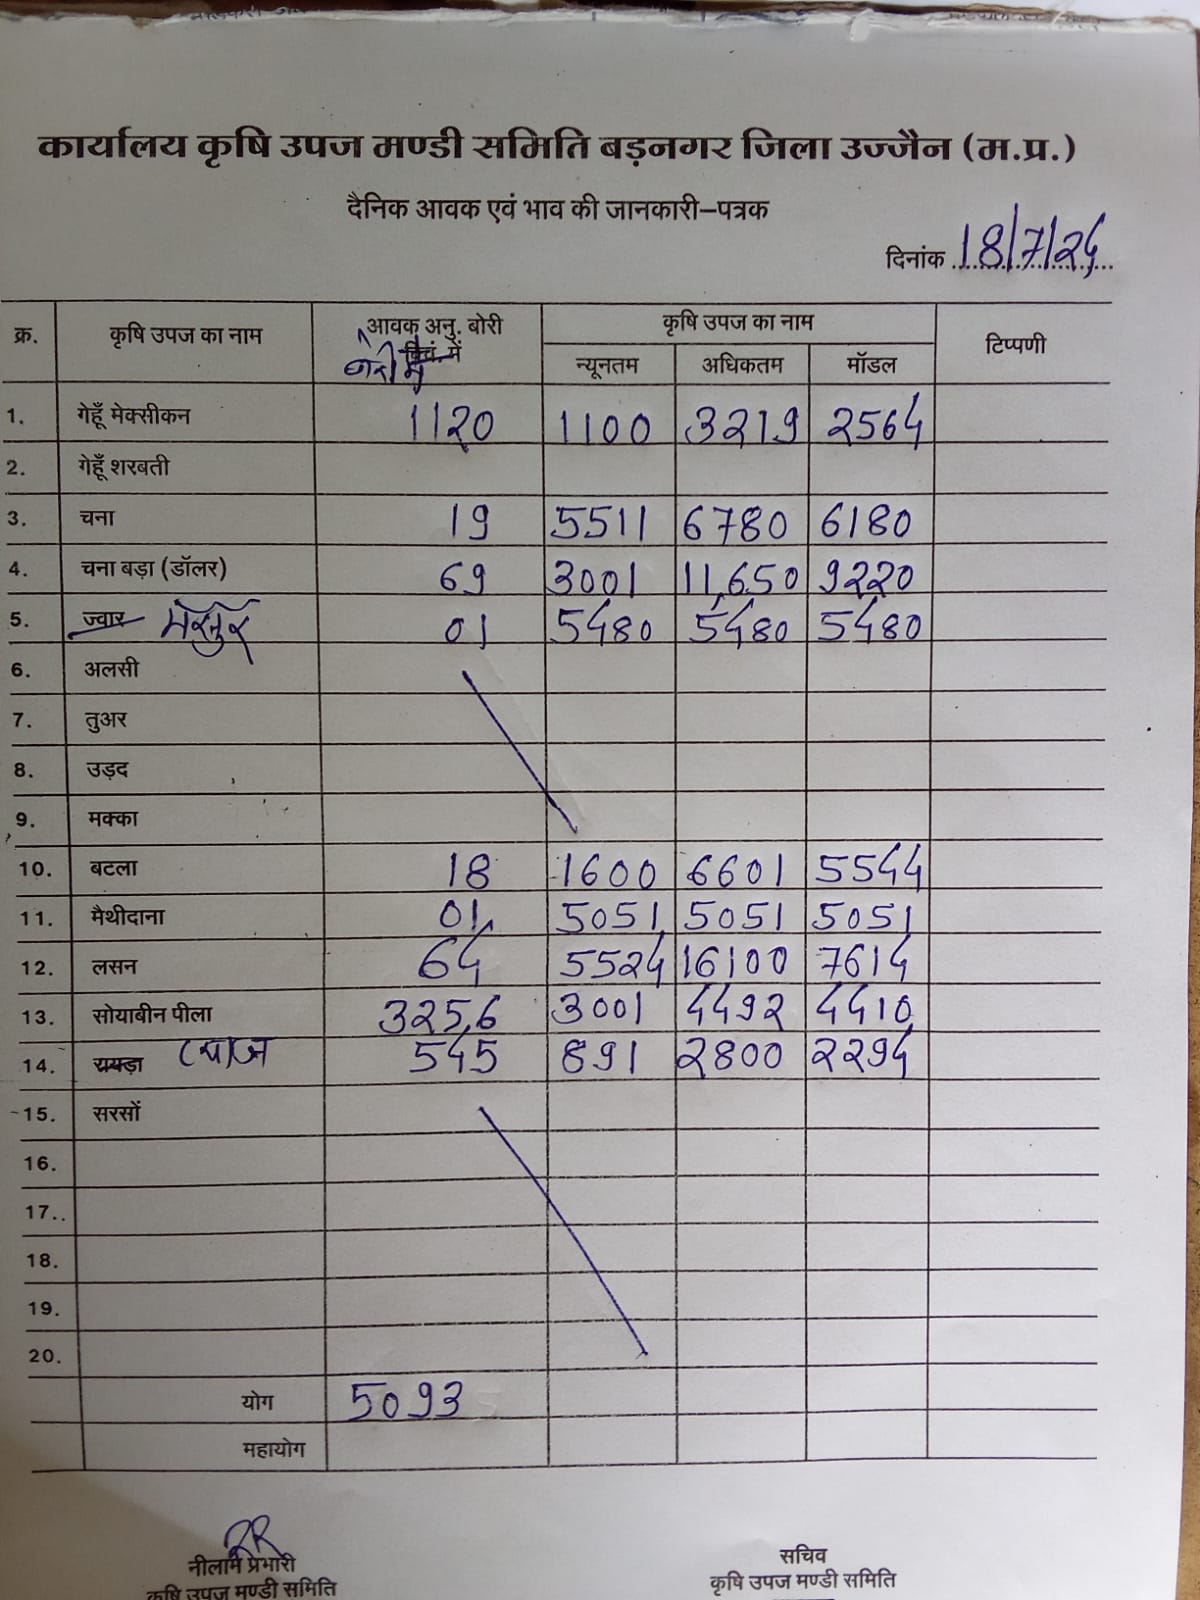 कार्यालय कृषि उपज मण्डी समिति बड़नगर जिला उज्जैन (म.प्र.)
दैनिक आवक एवं भाव की जानकारी–पत्रक
दिनांक 18/7/24
क्र. कृषि उपज का नाम आवक अनु. बोरी क्विं. में बोरी में कृषि उपज का नाम टिप्पणी
न्यूनतम अधिकतम मॉडल
1. गेहूँ मेक्सीकन 1120 1100 3219 2564
2. गेहूँ शरबती
3. चना 19 5511 6780 6180
4. चना बड़ा (डॉलर) 69 3001 11,650 9220
5. ज्वार मसुर 01 5480 5480 5480
6. अलसी
7. तुअर
8. उड़द
9. मक्का
10. बटला 18 1600 6601 5544
11. मैथीदाना 01 5051 5051 5051
12. लसन 64 5524 16100 7614
13. सोयाबीन पीला 3256 3001 4492 4410
14. रायड़ा प्याज 545 891 2800 2294
15. सरसों
16.
17..
18.
19.
20.
योग 5093
महायोग
नीलाम प्रभारी सचिव
कृषि उपज मण्डी समिति कृषि उपज मण्डी समिति